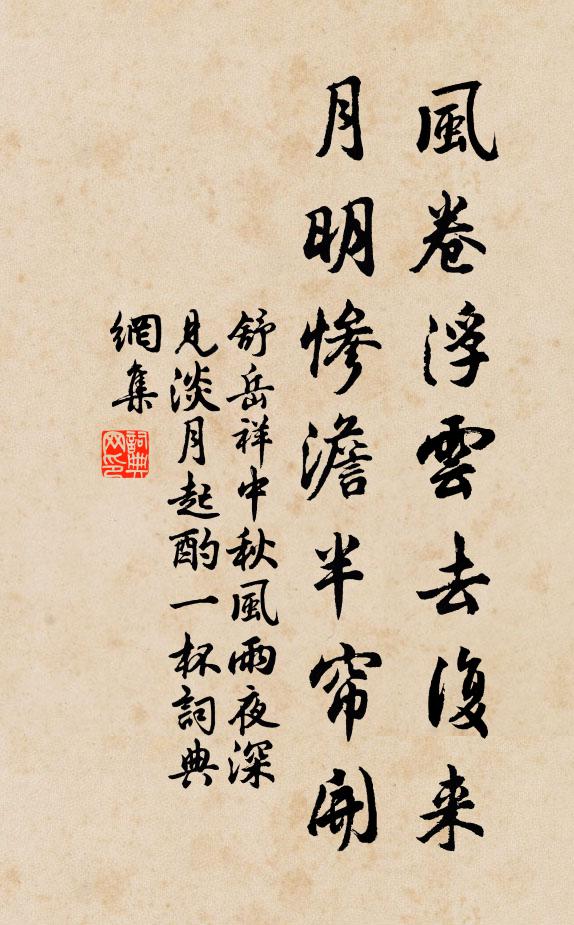 風卷浮雲去復来
月明惨澹半帘開
舒岳祥中秋風雨夜深
見淡月起酌一杯詞典
網集
詞典
网印